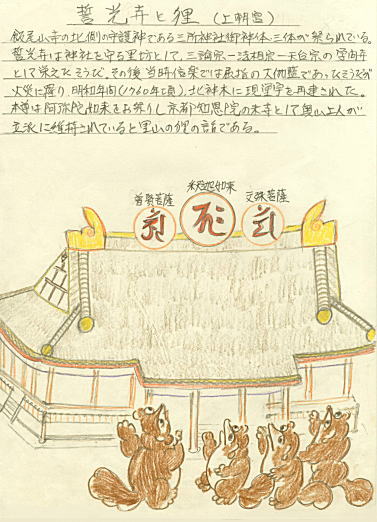 誓光寺と狸 (上朝宮)
飯尾山寺の北側の守護神である三所神社御神体三体が祭られている。
誓光寺は神社を守る里坊として、三論宗一法相宗一天台宗の学問寺
として栄えたそうだ。その後、当時信楽では屈指の大伽藍であったそうだが
火災に罹り、明和年間(1760年頃)、北神木に現堂宇を再建された。
本尊は阿弥陀如来をお祭りし京都知恩院の末寺として奥山上人が
立派に維持されていると里山の狸の話である。
普賢菩薩
釈迦如来
文殊菩薩